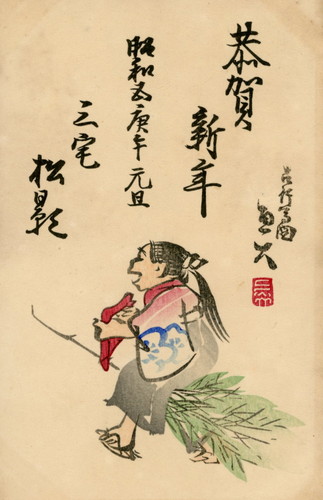 恭賀
新年
昭和五庚午元旦
三宅
松影